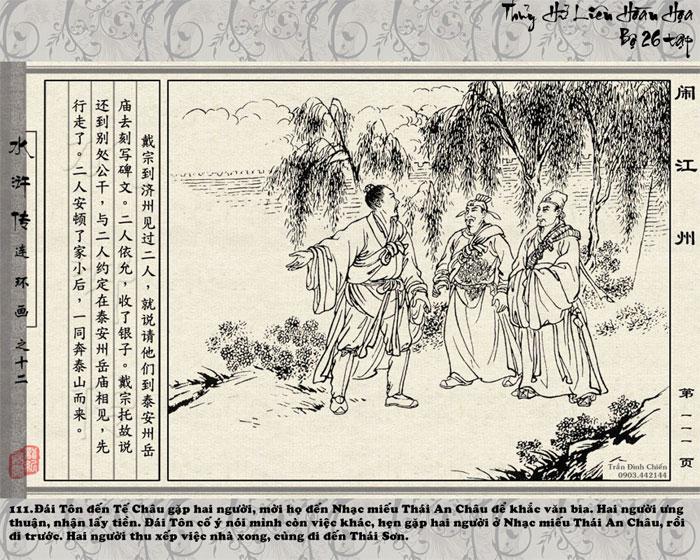 Thủy Hử Liên Hoàn Họa
Bộ 26 tập
闹江州
第一一一页
水浒传连环画之十二
戴宗到济州见过二人，就说请他们到泰安州岳
庙去刻写碑文。二人依允，收了银子。戴宗托故说
还到别处公干，与二人约定在泰安州岳庙相见，先
行走了。二人安顿了家小后，一同奔泰山而来。
Trần Đình Chiến
0903.442144
111.Đái Tôn đến Tế Châu gặp hai người, mời họ đến Nhạc miếu Thái An Châu để khắc văn bia. Hai người ưng
thuận, nhận lấy tiền. Đái Tôn cố ý nói mình còn việc khác, hẹn gặp hai người ở Nhạc miếu Thái An Châu, rồi
đi trước. Hai người thu xếp việc nhà xong, cùng đi đến Thái Sơn.